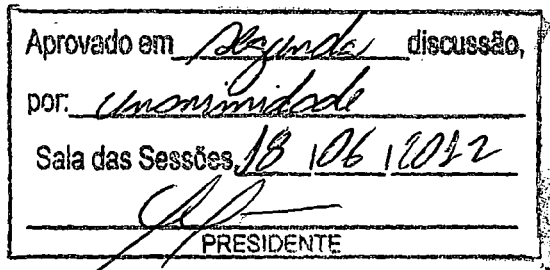 Aprovado em segunda discussão,
por: unanimidade
Sala das Sessões, 18/06/2012
PRESIDENTE